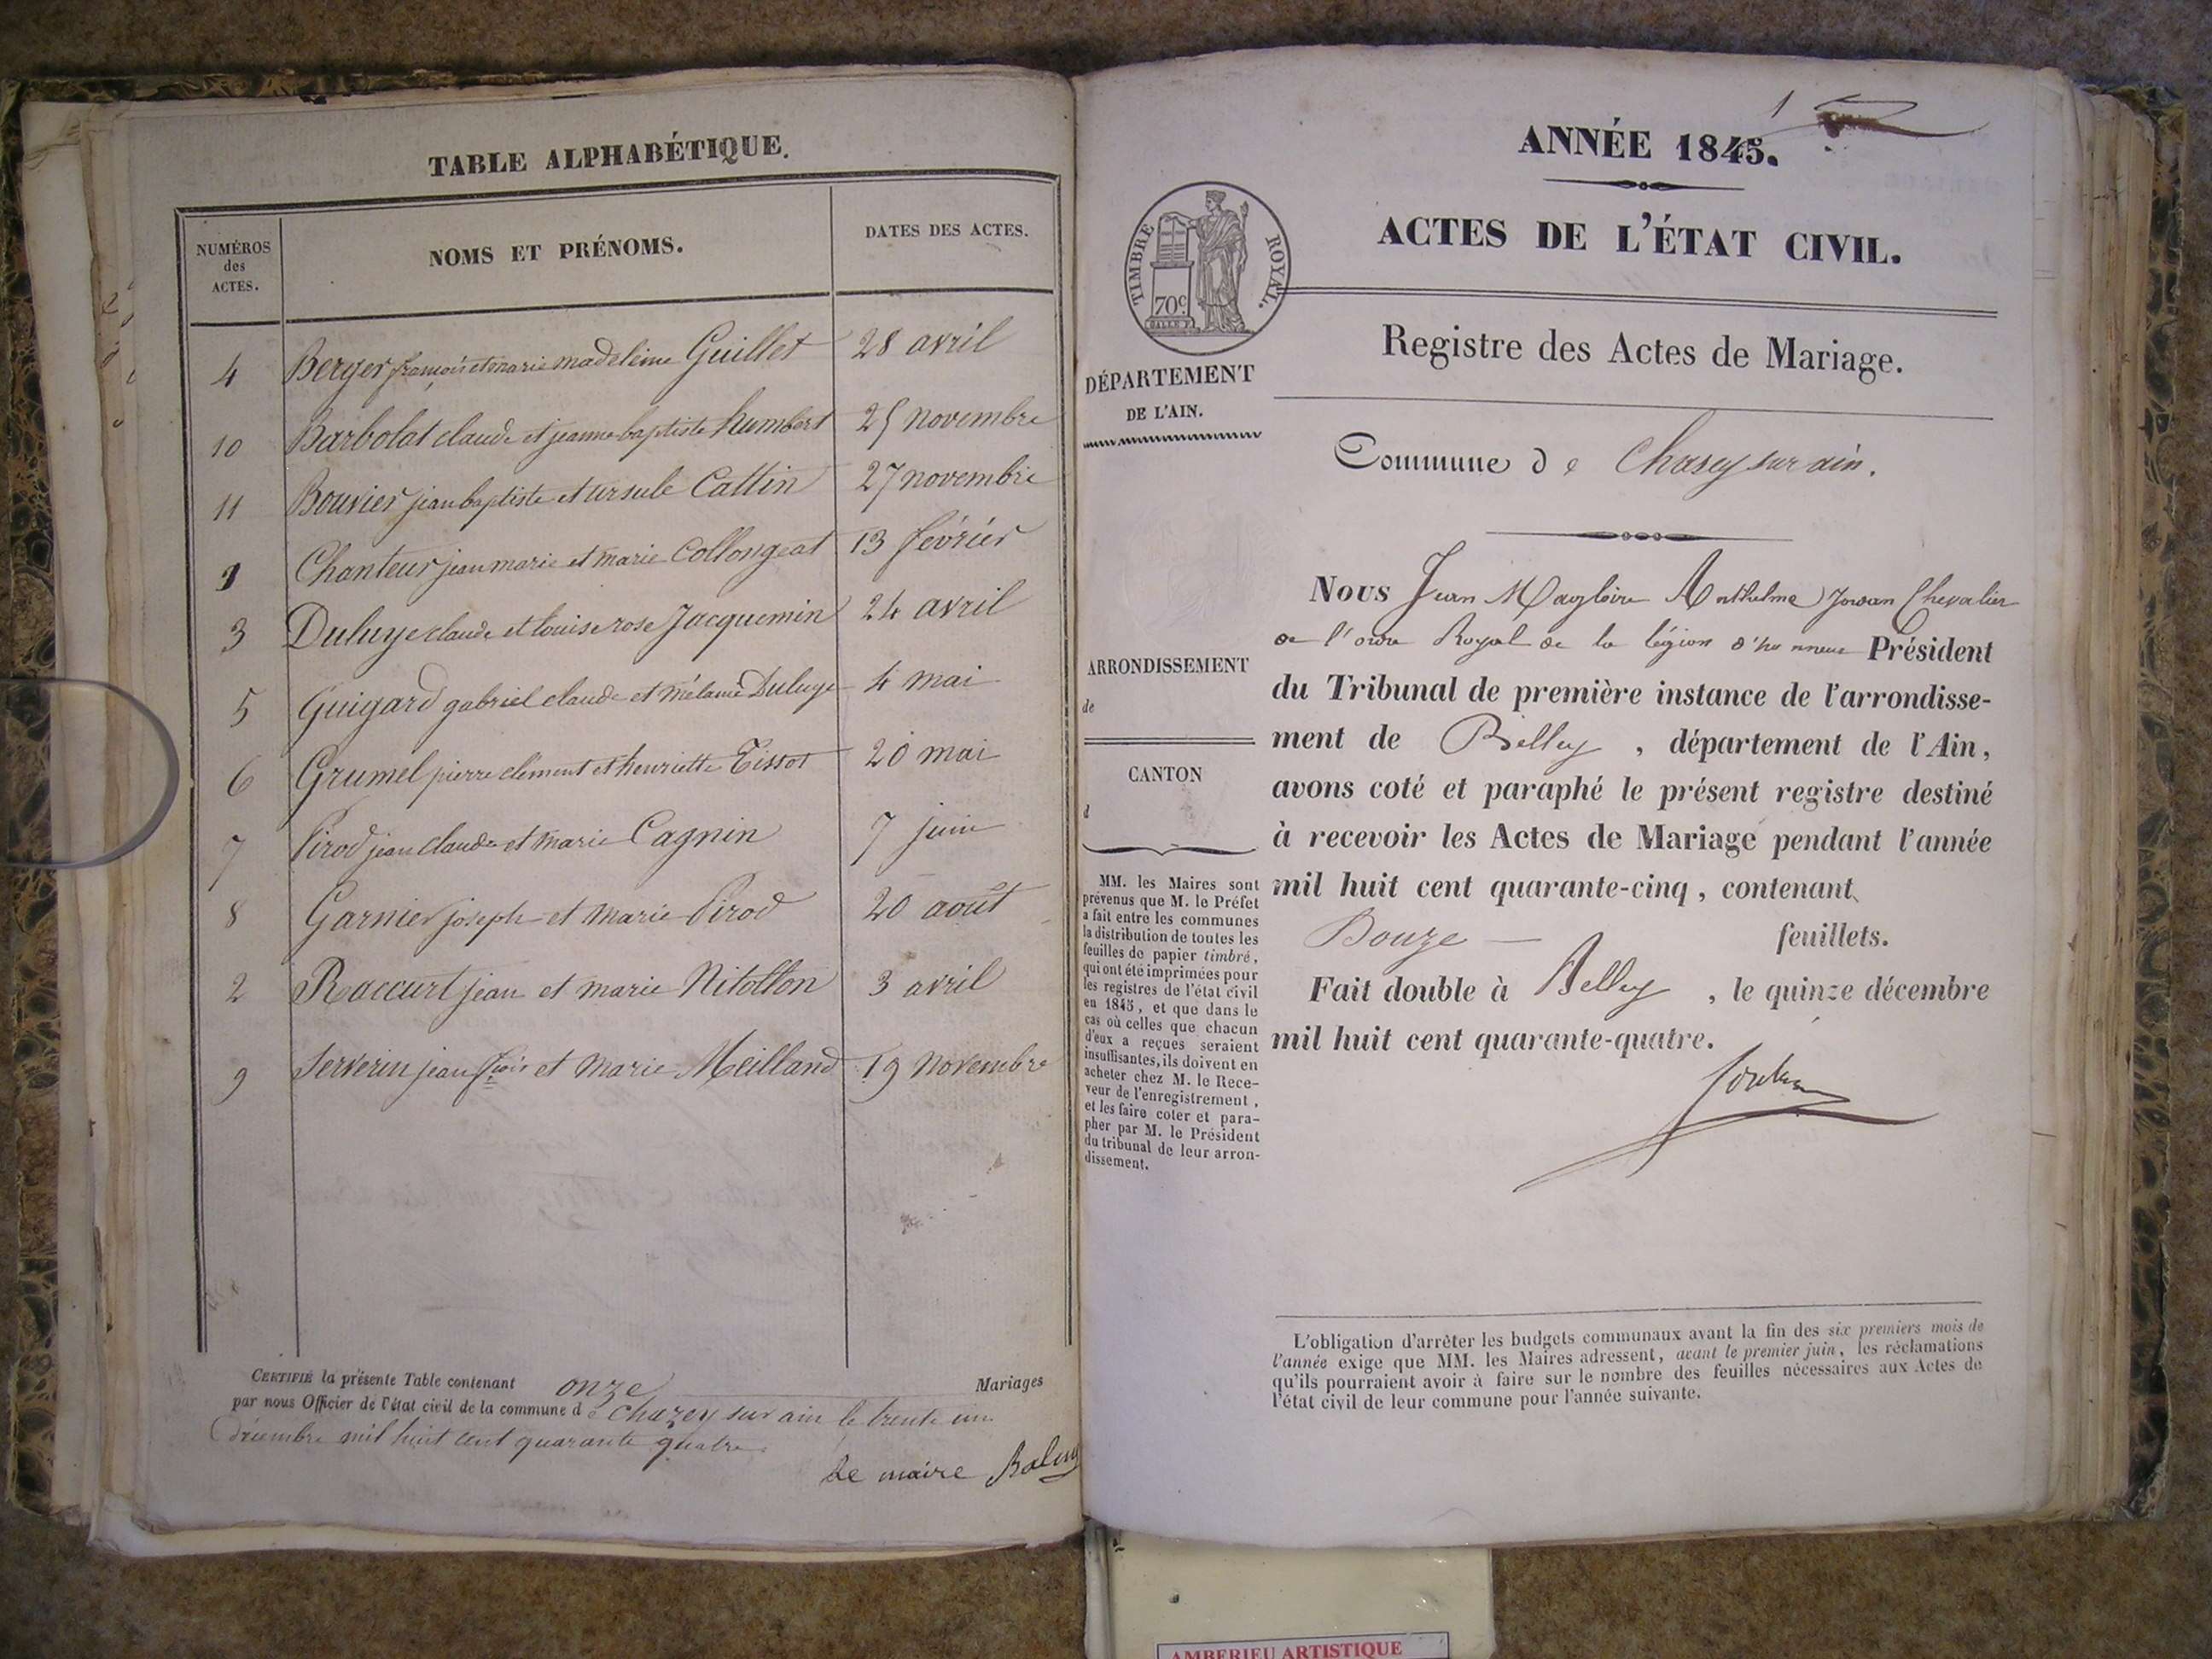 TABLE ALPHABÉTIQUE.
NUMÉROS des ACTES. NOMS ET PRÉNOMS. DATES DES ACTES.
4 Berger françois et marie madeleine Guillet 28 avril
10 Barbolat claude et jeanne baptiste humbert 25 novembre
11 Bouvier jean baptiste et ursule Cattin 27 novembre
1 Chanteur jean marie et marie Collongeat 13 février
3 Duluye claude et louise rose Jacquemin 24 avril
5 Guigard gabriel claude et mélanie Duluye 4 mai
6 Grumel pierre clément et henriette Tissot 20 mai
7 Pirod jean claude et marie Cagnin 7 juin
8 Garnier joseph et marie Pirod 20 août
2 Raccurt jean et marie Nitollon 3 avril
9 Serverin jean fçois et marie Meilland 19 novembre
CERTIFIÉ la présente Table contenant onze Mariages
par nous Officier de l'état civil de la commune d e chazey sur ain le trente un
décembre mil huit cent quarante quatre.
Le maire
1
ANNÉE 1845.
ACTES DE L'ÉTAT CIVIL.
TIMBRE ROYAL.
70c
Registre des Actes de Mariage.
DÉPARTEMENT
DE L'AIN.
Commune d e Chasey sur ain.
Nous Jean Magloire Anthelme Jordan Chevalier
de l'ordre Royal de la légion d'honneur Président
du Tribunal de première instance de l'arrondisse-
ment de Belley , département de l'Ain,
avons coté et paraphé le présent registre destiné
à recevoir les Actes de Mariage pendant l'année
mil huit cent quarante-cinq, contenant
Douze feuillets.
Fait double à Belley , le quinze décembre
mil huit cent quarante-quatre.
ARRONDISSEMENT
de
CANTON
d
MM. les Maires sont
prévenus que M. le Préfet
a fait entre les communes
la distribution de toutes les
feuilles de papier timbré,
qui ont été imprimées pour
les registres de l'état civil
en 1845, et que dans le
cas où celles que chacun
d'eux a reçues seraient
insuffisantes, ils doivent en
acheter chez M. le Rece-
veur de l'enregistrement,
et les faire coter et para-
pher par M. le Président
du tribunal de leur arron-
dissement.
L'obligation d'arrêter les budgets communaux avant la fin des six premiers mois de
l'année exige que MM. les Maires adressent, avant le premier juin, les réclamations
qu'ils pourraient avoir à faire sur le nombre des feuilles nécessaires aux Actes de
l'état civil de leur commune pour l'année suivante.
AMBERIEU ARTISTIQUE